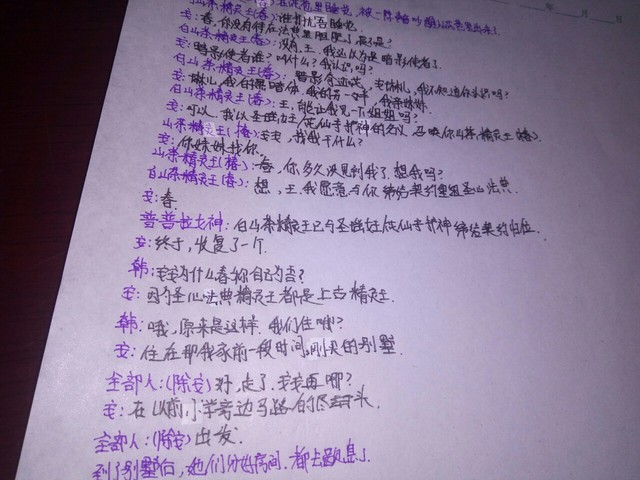 白山茶精灵王(春):谁打扰吾睡觉.
安:春,你没有待在法典里胆肥了,是不是?
白山茶精灵王(春):没有,王.我还以为是暗影使者了.
安:暗影使者谁?叫什么?我认识吗?
白山茶精灵王(春):暗影
安:琳儿,我的黑暗体,我的另一女神,我亲妹妹.
白山茶精灵王(春):王,能让我见一下姐姐吗?
安:可以.我以圣 守护神的名义,召唤你山茶精灵王(椿)
山茶精灵王(椿):安安,找我干什么?
安:你妹妹找你.
山茶精灵王(椿):春,你多久没见到我了.想我吗?
白山茶精灵王(春):想,王.我愿意与你缔结契约重组圣心法典.
安:春.
普普拉女神:白山茶精灵王已与圣 守护神缔结契约归位.
安:终于,收复了一个.
韩:安安为什么春称自己为吾?
安:因为圣心法典精灵王都是上古精灵王.
韩:哦,原来是这样.我们住哪?
安:住在那我家前一段时间,刚买的别墅.
全部人:(除安)对,走了.安安再哪?
安:在以前,小学旁边马路的尽头.
全部人:(除安)出发.
到了别墅后,她们分好房间.都去歇息了.